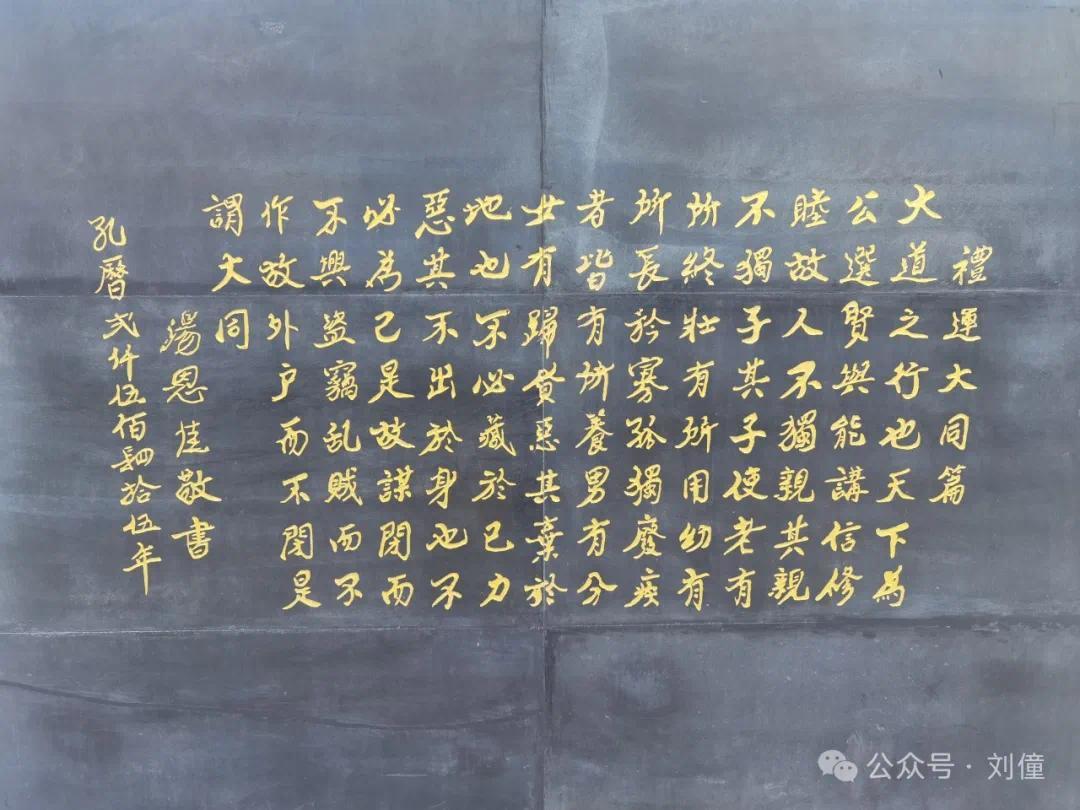 禮運大同篇
大道之行也天下為
公選賢與能講信修
睦故人不獨親其親
不獨子其子使老有
所終壯有所用幼有
所長矜寡孤獨廢疾
者皆有所養男有分
女有歸貨惡其棄於
地也不必藏於己力
惡其不出於身也不
必為己是故謀閉而
不興盜竊乱賊而不
作故外户而不閉是
謂大同
湯恩佳敬書
孔曆弍仟伍佰肆拾伍年
公众号·刘僮